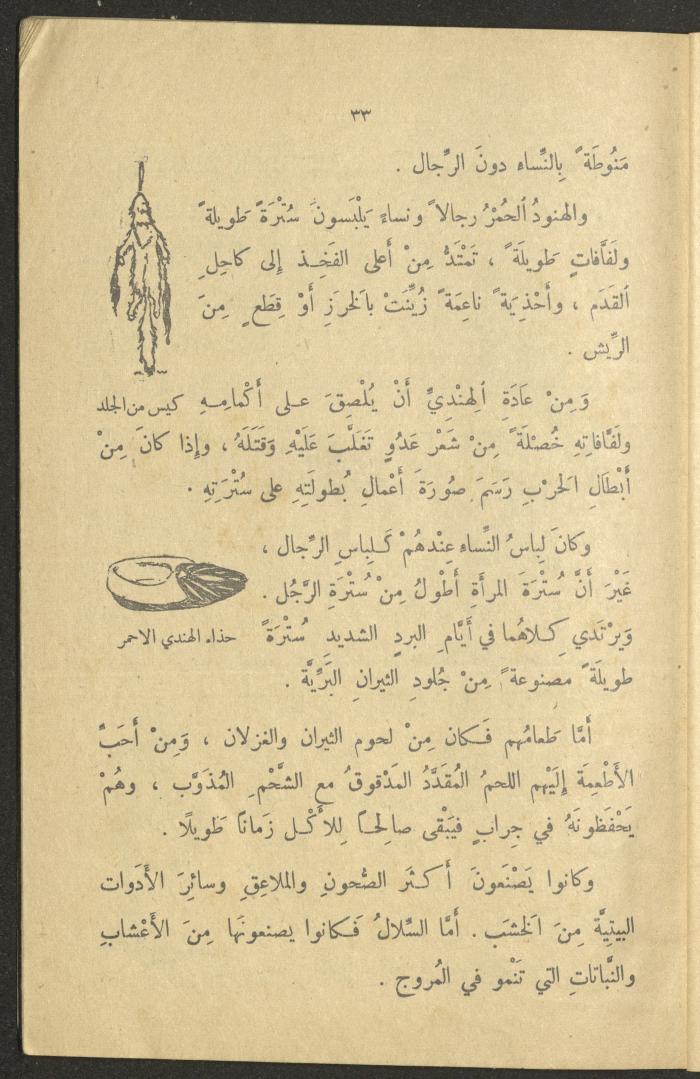 ٣٣
مَنُوطَةً بِالنِّساءِ دونَ الرِّجال .
والهنودُ ٱلحُمْرُ رجالاً ونساءً يَلْبَسونَ سُتْرَةً طَويلةً
ولَفَّافاتٍ طَويلَةً ، تَمْتَدُّ مِنْ أَعلى الفَخِـذ إلى كاحِلِ
ٱلقَدَم ، وأَحْذِيَةً ناعِمَةً زُيِّنَتْ بالخَرَزِ أَوْ قِطَعٍ مِنَ
الرِّيش .
وَمِنْ عَادَةِ ٱلهِنْدِيِّ أَنْ يُلْصِقَ عـلى أَكْمامِـهِ
كيس من الجلد
ولَفَّافاتِهِ خُصْلَةً مِنْ شَعْر عَدُوٍ تَغَلَّبَ عَلَيْهِ وَقَتَلَهُ ، وإذا كانَ مِنْ
أَبْطَالِ الحَرْبِ رَسَمَ صُورَةَ أَعْمالِ بُطولَتِهِ على سُتْرَتِهِ .
وكانَ لِباسُ النِّساءِ عِنْدهُمْ كَـلِباسِ الرِّجال ،
غَيْرَ أَنَّ سُتْرَةَ المرأَةِ أَطْولُ مِنْ سُتْرَةِ الرَّجُل .
وَيرْتَدي كِـلاهُما في أَيَّامِ البردِ الشديدِ سُتْرَةً
حذاء الهندي الاحمر
طويلَةً مصنوعةً مِنْ جُلودِ الثيرانِ البَرِّيَّة .
أَمَّا طَعامُهم فَـكان مِنْ لحوم الثيران والغزلان ، وَمِنْ أَحَبِّ
الأَطْعِمَة إلَيْهِم اللحمُ المُقَدَّدُ المَدْقوقُ مع الشَّحْمِ المُذَوَّب ، وهُمْ
يَحْفَظونَهُ في جِرابٍ فيَبْقى صالِحـاً لِلأَكْـل زَماناً طَويلًا .
وكانوا يَصْنَعونَ أَكـثَر الصُّحونِ والملاعِقِ وسائِرَ الأَدَوات
البيتِيَّة مِنَ الخَشَب . أَمَّا السِّلالُ فَـكانوا يصنعونَها مِنَ الأَعْشابِ
والنَّباتاتِ التي تَنْمو في المُروج .